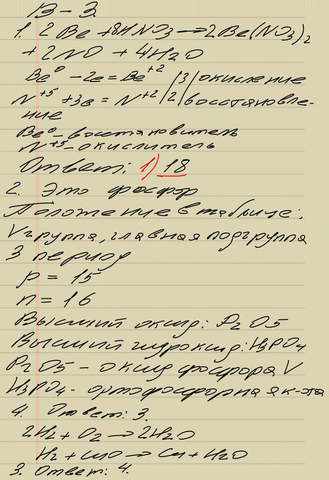 В-3.
1. 2Be + 8HNO3 → 2Be(NO3)2
+ 2NO + 4H2O
Be⁰ - 2e = Be⁺² |3| окисление
N⁺⁵ + 3e = N⁺² |2| восстановле-
ние
Be⁰ - восстановитель
N⁺⁵ - окислитель
Ответ: 1) 18
2. Это фосфор
Положение в таблице:
V группа, главная подгруппа
3 период
p = 15
n = 16
Высший оксид: P2O5
Высший гидроксид: H3PO4
P2O5 - оксид фосфора V
H3PO4 - ортофосфорная к-та
4. Ответ: 3.
2H2 + O2 → 2H2O
H2 + CuO → Cu + H2O
3. Ответ: 4.